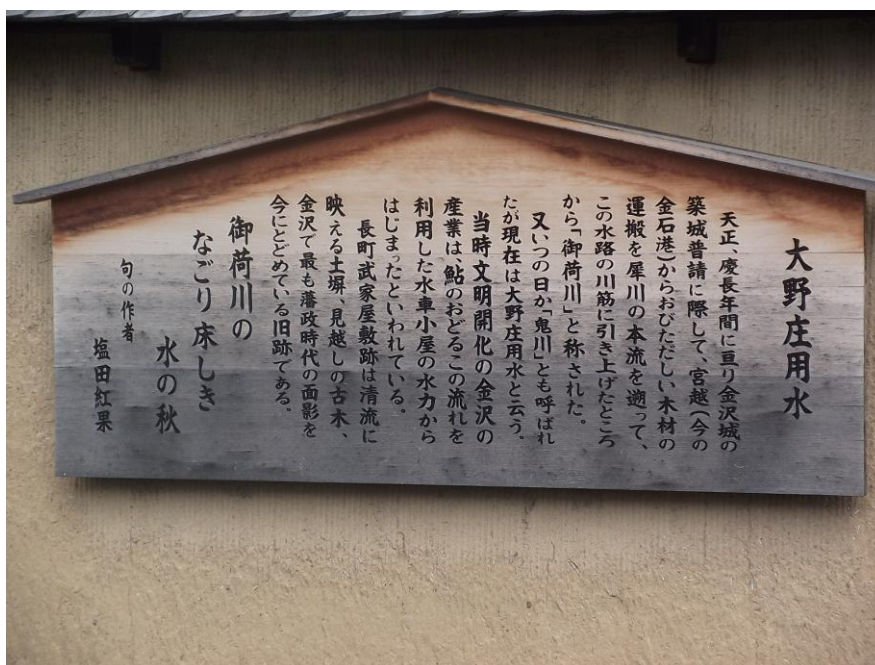 大野庄用水
天正、慶長年間に亘り金沢城の
築城普請に際して、宮越(今の
金石港)からおびただしい木材の
運搬を犀川の本流を遡って、
この水路の川筋に引き上げたところ
から「御荷川」と称された。
又いつの日か「鬼川」とも呼ばれ
たが現在は大野庄用水と云う。
当時文明開化の金沢の
産業は、鮎のおどるこの流れを
利用した水車小屋の水力から
はじまったといわれている。
長町武家屋敷跡は清流に
映える土塀、見越しの古木、
金沢で最も藩政時代の面影を
今にとどめている旧跡である。
御荷川の
なごり床しき
水の秋
句の作者
塩田紅果